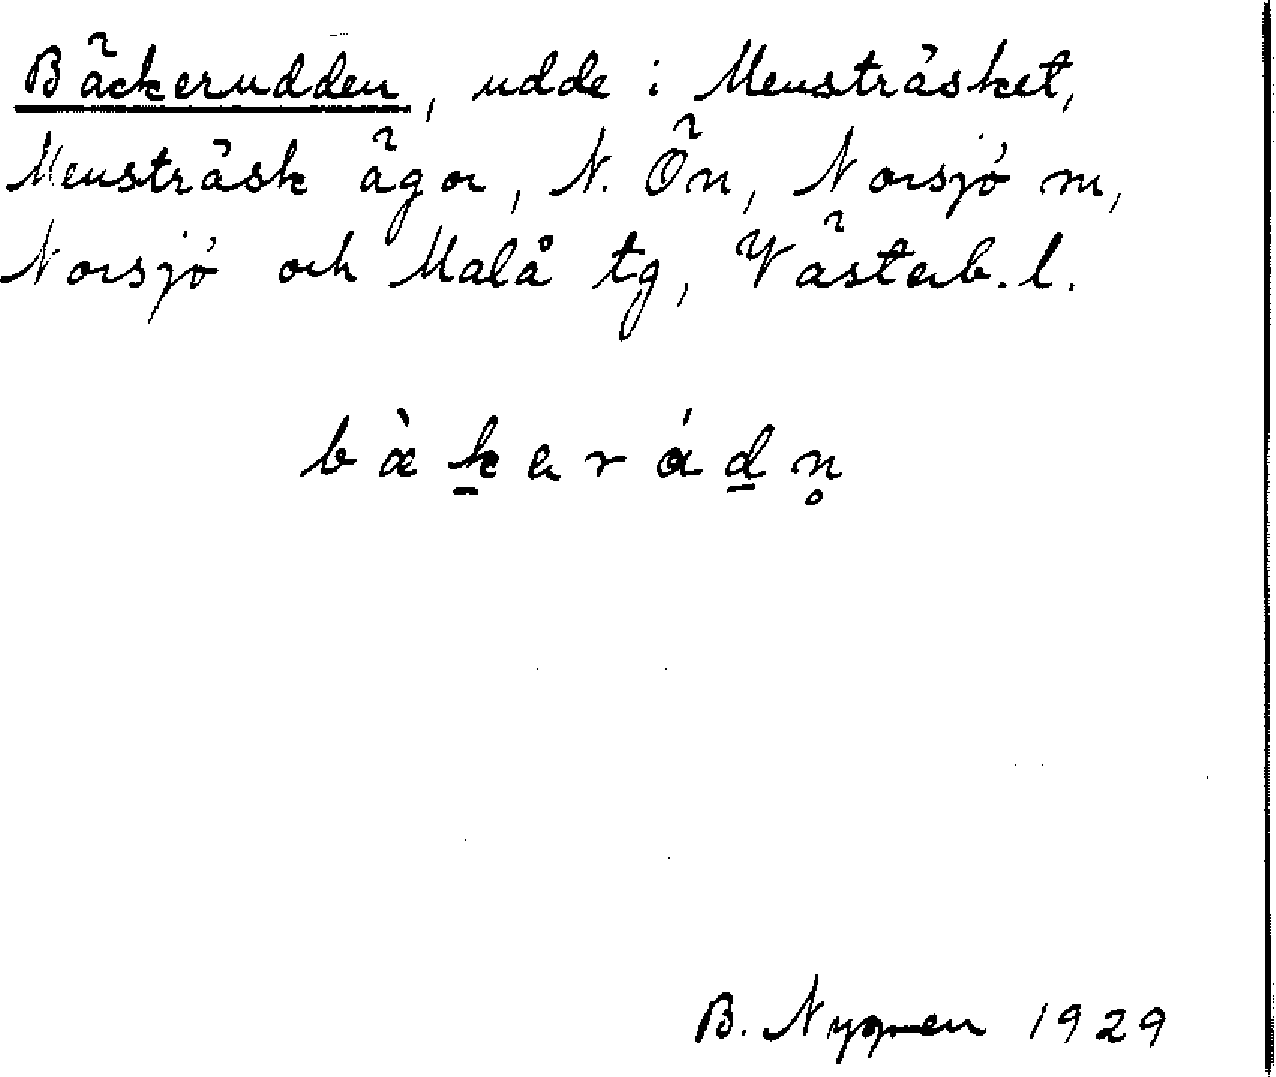 Bäckerudden, udde i Mensträsket,
Mensträsk ägor, N. Ön, Norsjö sn,
Norsjö och Malå tg, Västerb. l.
bæ̀ḵeráḏn̥
B. Nygren 1929